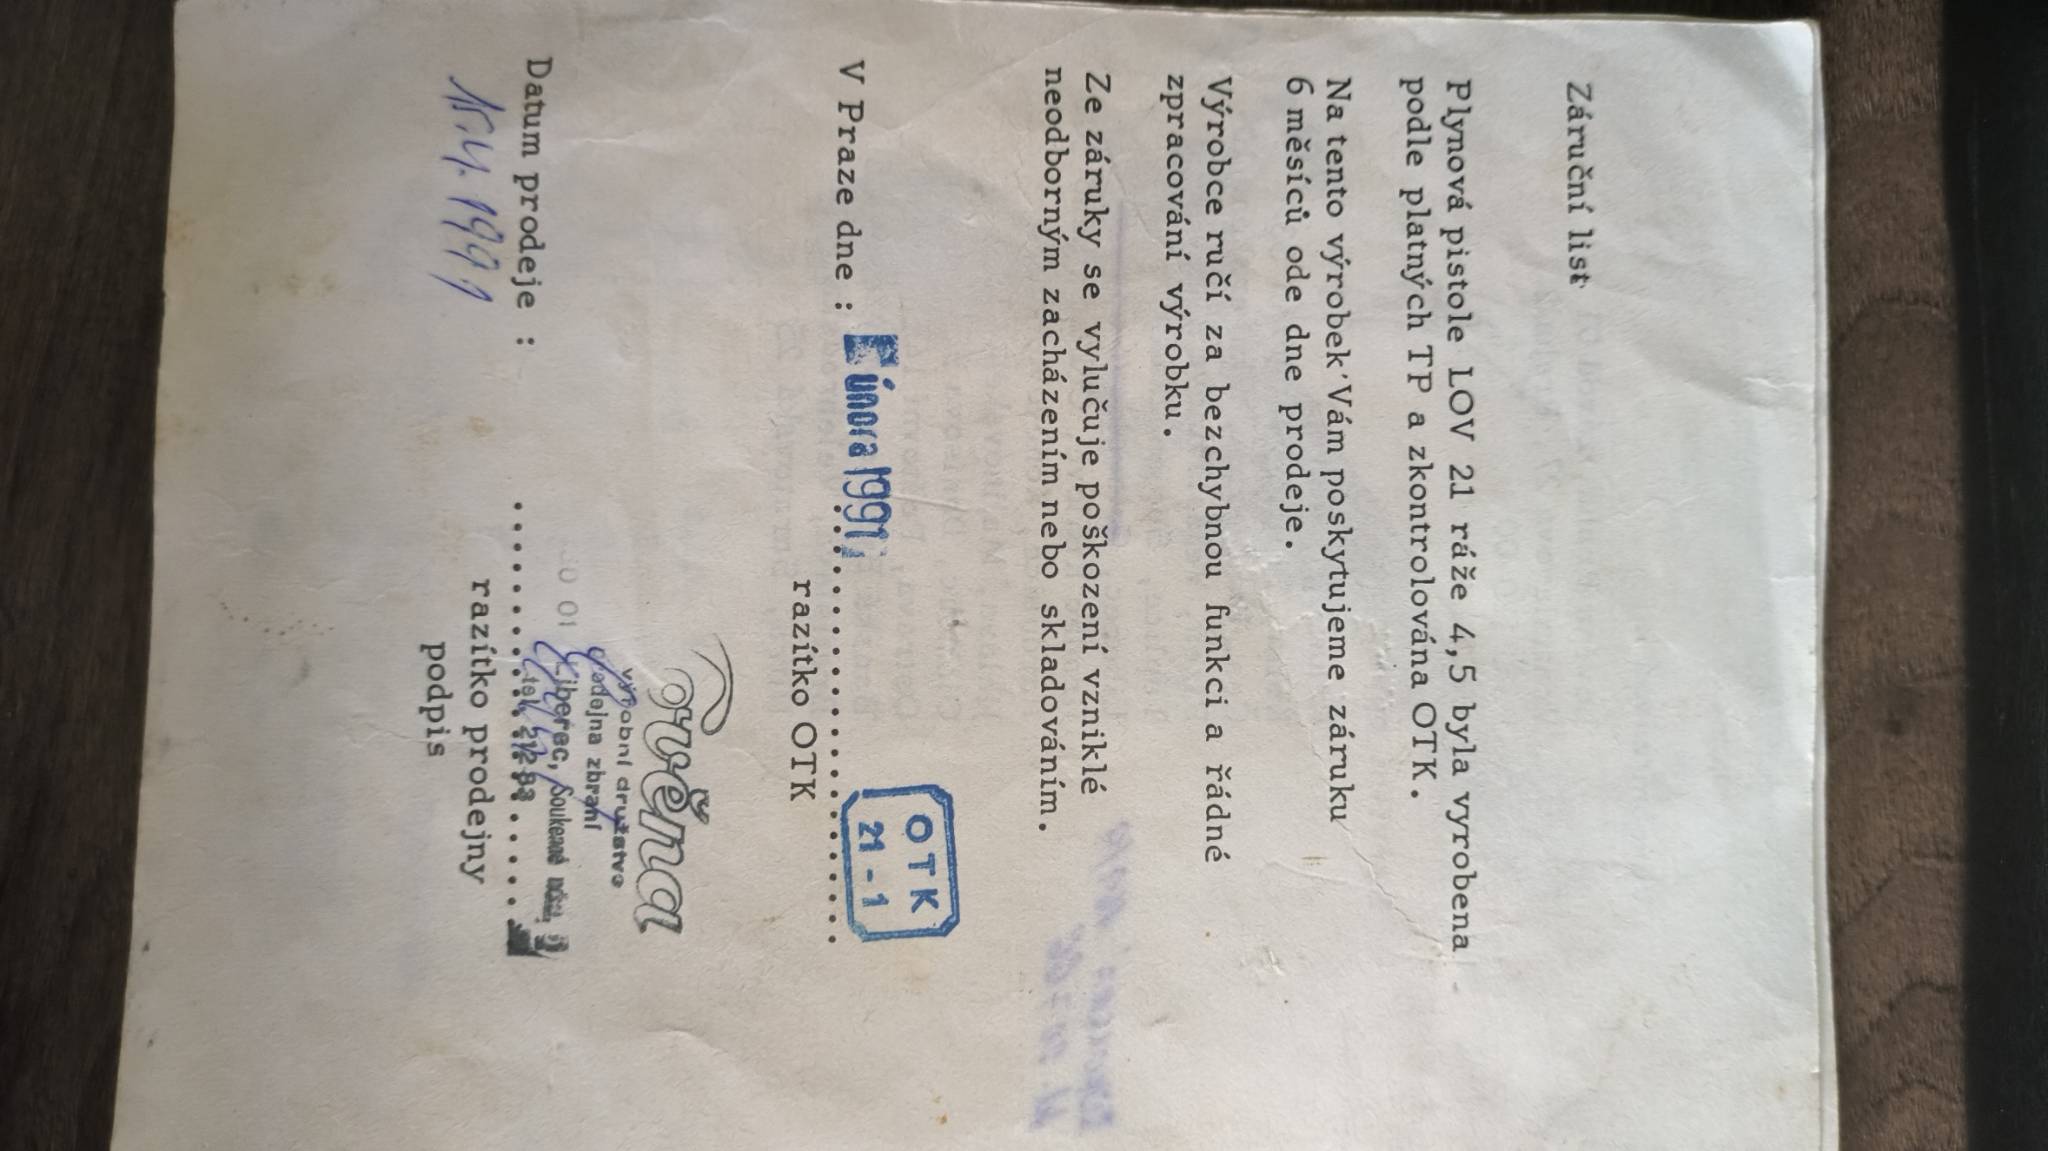 Záruční list
Plynová pistole LOV 21 ráže 4,5 byla vyrobena
podle platných TP a zkontrolována OTK.
Na tento výrobek Vám poskytujeme záruku
6 měsíců ode dne prodeje.
Výrobce ručí za bezchybnou funkci a řádné
zpracování výrobku.
Ze záruky se vylučuje poškození vzniklé
neodborným zacházením nebo skladováním.
OTK
21-1
V Praze dne : února 1991
razítko OTK
výrobní družstvo
prodejna zbraní
Liberec, Soukenné nám.
Datum prodeje :
tel.
1991
razítko prodejny
podpis